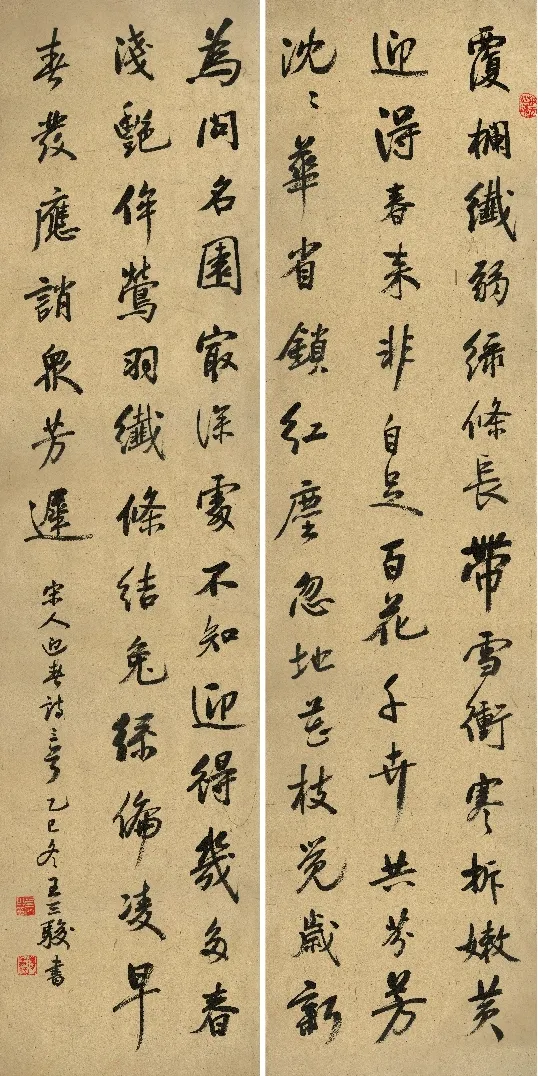 覆欄纖弱綠條長帶雪衝寒拆嫩黃
迎得春来非自足百花千卉共芬芳
沈〻華省鎖紅塵忽地花枝覺歲新
為問名園最深處不知迎得幾多春
淺艷侔鶯羽纖條結兔絲偏凌早
春發應誚眾芳遲 宋人迎春詩三首 乙巳冬王三駿書